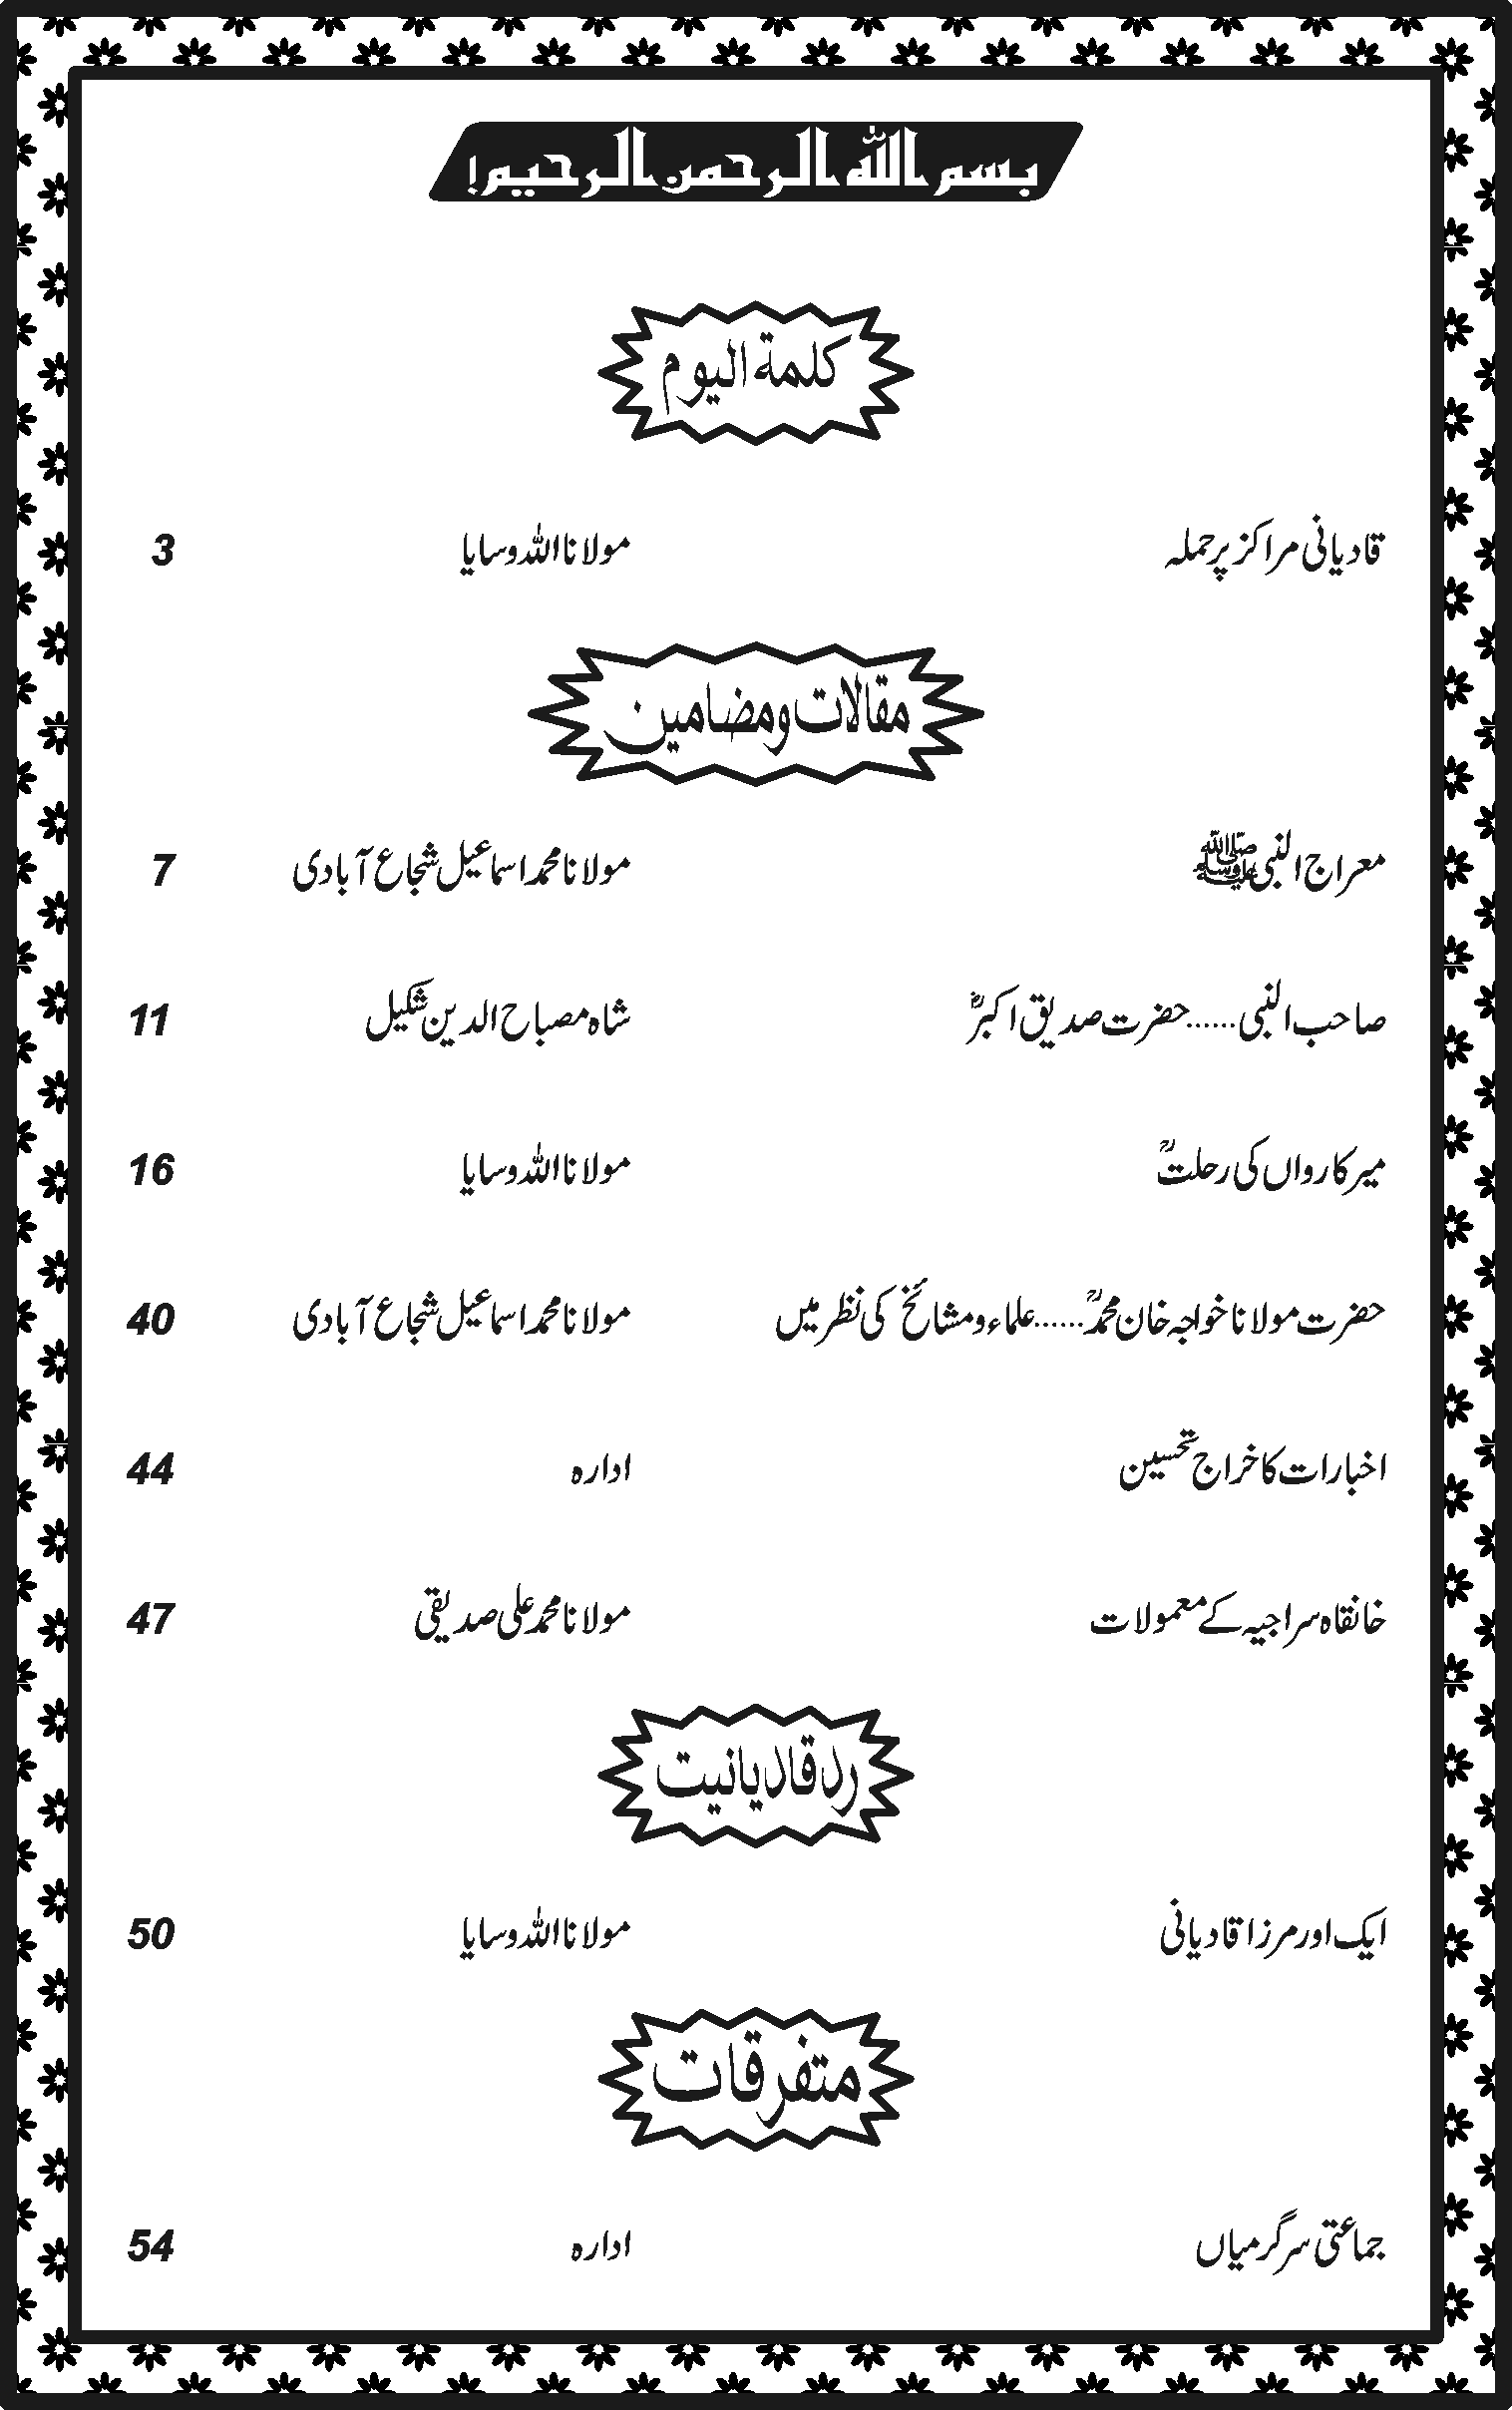 بسم اللہ الرحمن الرحیم!
کلمۃ الیوم
قادیانی مراکز پر حملہ مولانا اللہ وسایا 3
مقالات و مضامین
معراج النبی ﷺ مولانا محمد اسماعیل شجاع آبادی 7
صاحب النبی ...... حضرت صدیق اکبرؓ شاہ مصباح الدین شکیل 11
میر کارواں کی رحلتؒ مولانا اللہ وسایا 16
حضرت مولانا خواجہ خان محمدؒ ...... علماء و مشائخ کی نظر میں مولانا محمد اسماعیل شجاع آبادی 40
اخبارات کا خراج تحسین ادارہ 44
خانقاہ سراجیہ کے معمولات مولانا محمد علی صدیقی 47
رد قادیانیت
ایک اور مرزا قادیانی مولانا اللہ وسایا 50
متفرقات
جماعتی سرگرمیاں ادارہ 54